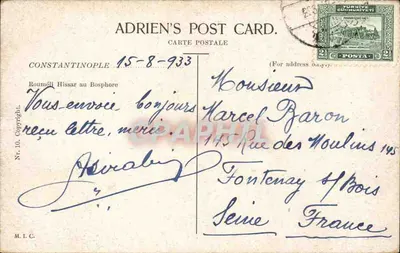 ADRIEN'S POST CARD.
CARTE POSTALE
CONSTANTINOPLE 15-8-933
Roumeli Hissar au Bosphore
Vous envoie bonjours
reçu lettre, merci.
Nr. 10. Copyright.
M. I. C.
TÜRKİYE CÜMHURİYETİ
2½ POSTA 2½
(For address only.)
Monsieur
Marcel Baron
143 Rue des Moulins 145
Fontenay s/Bois
Seine France